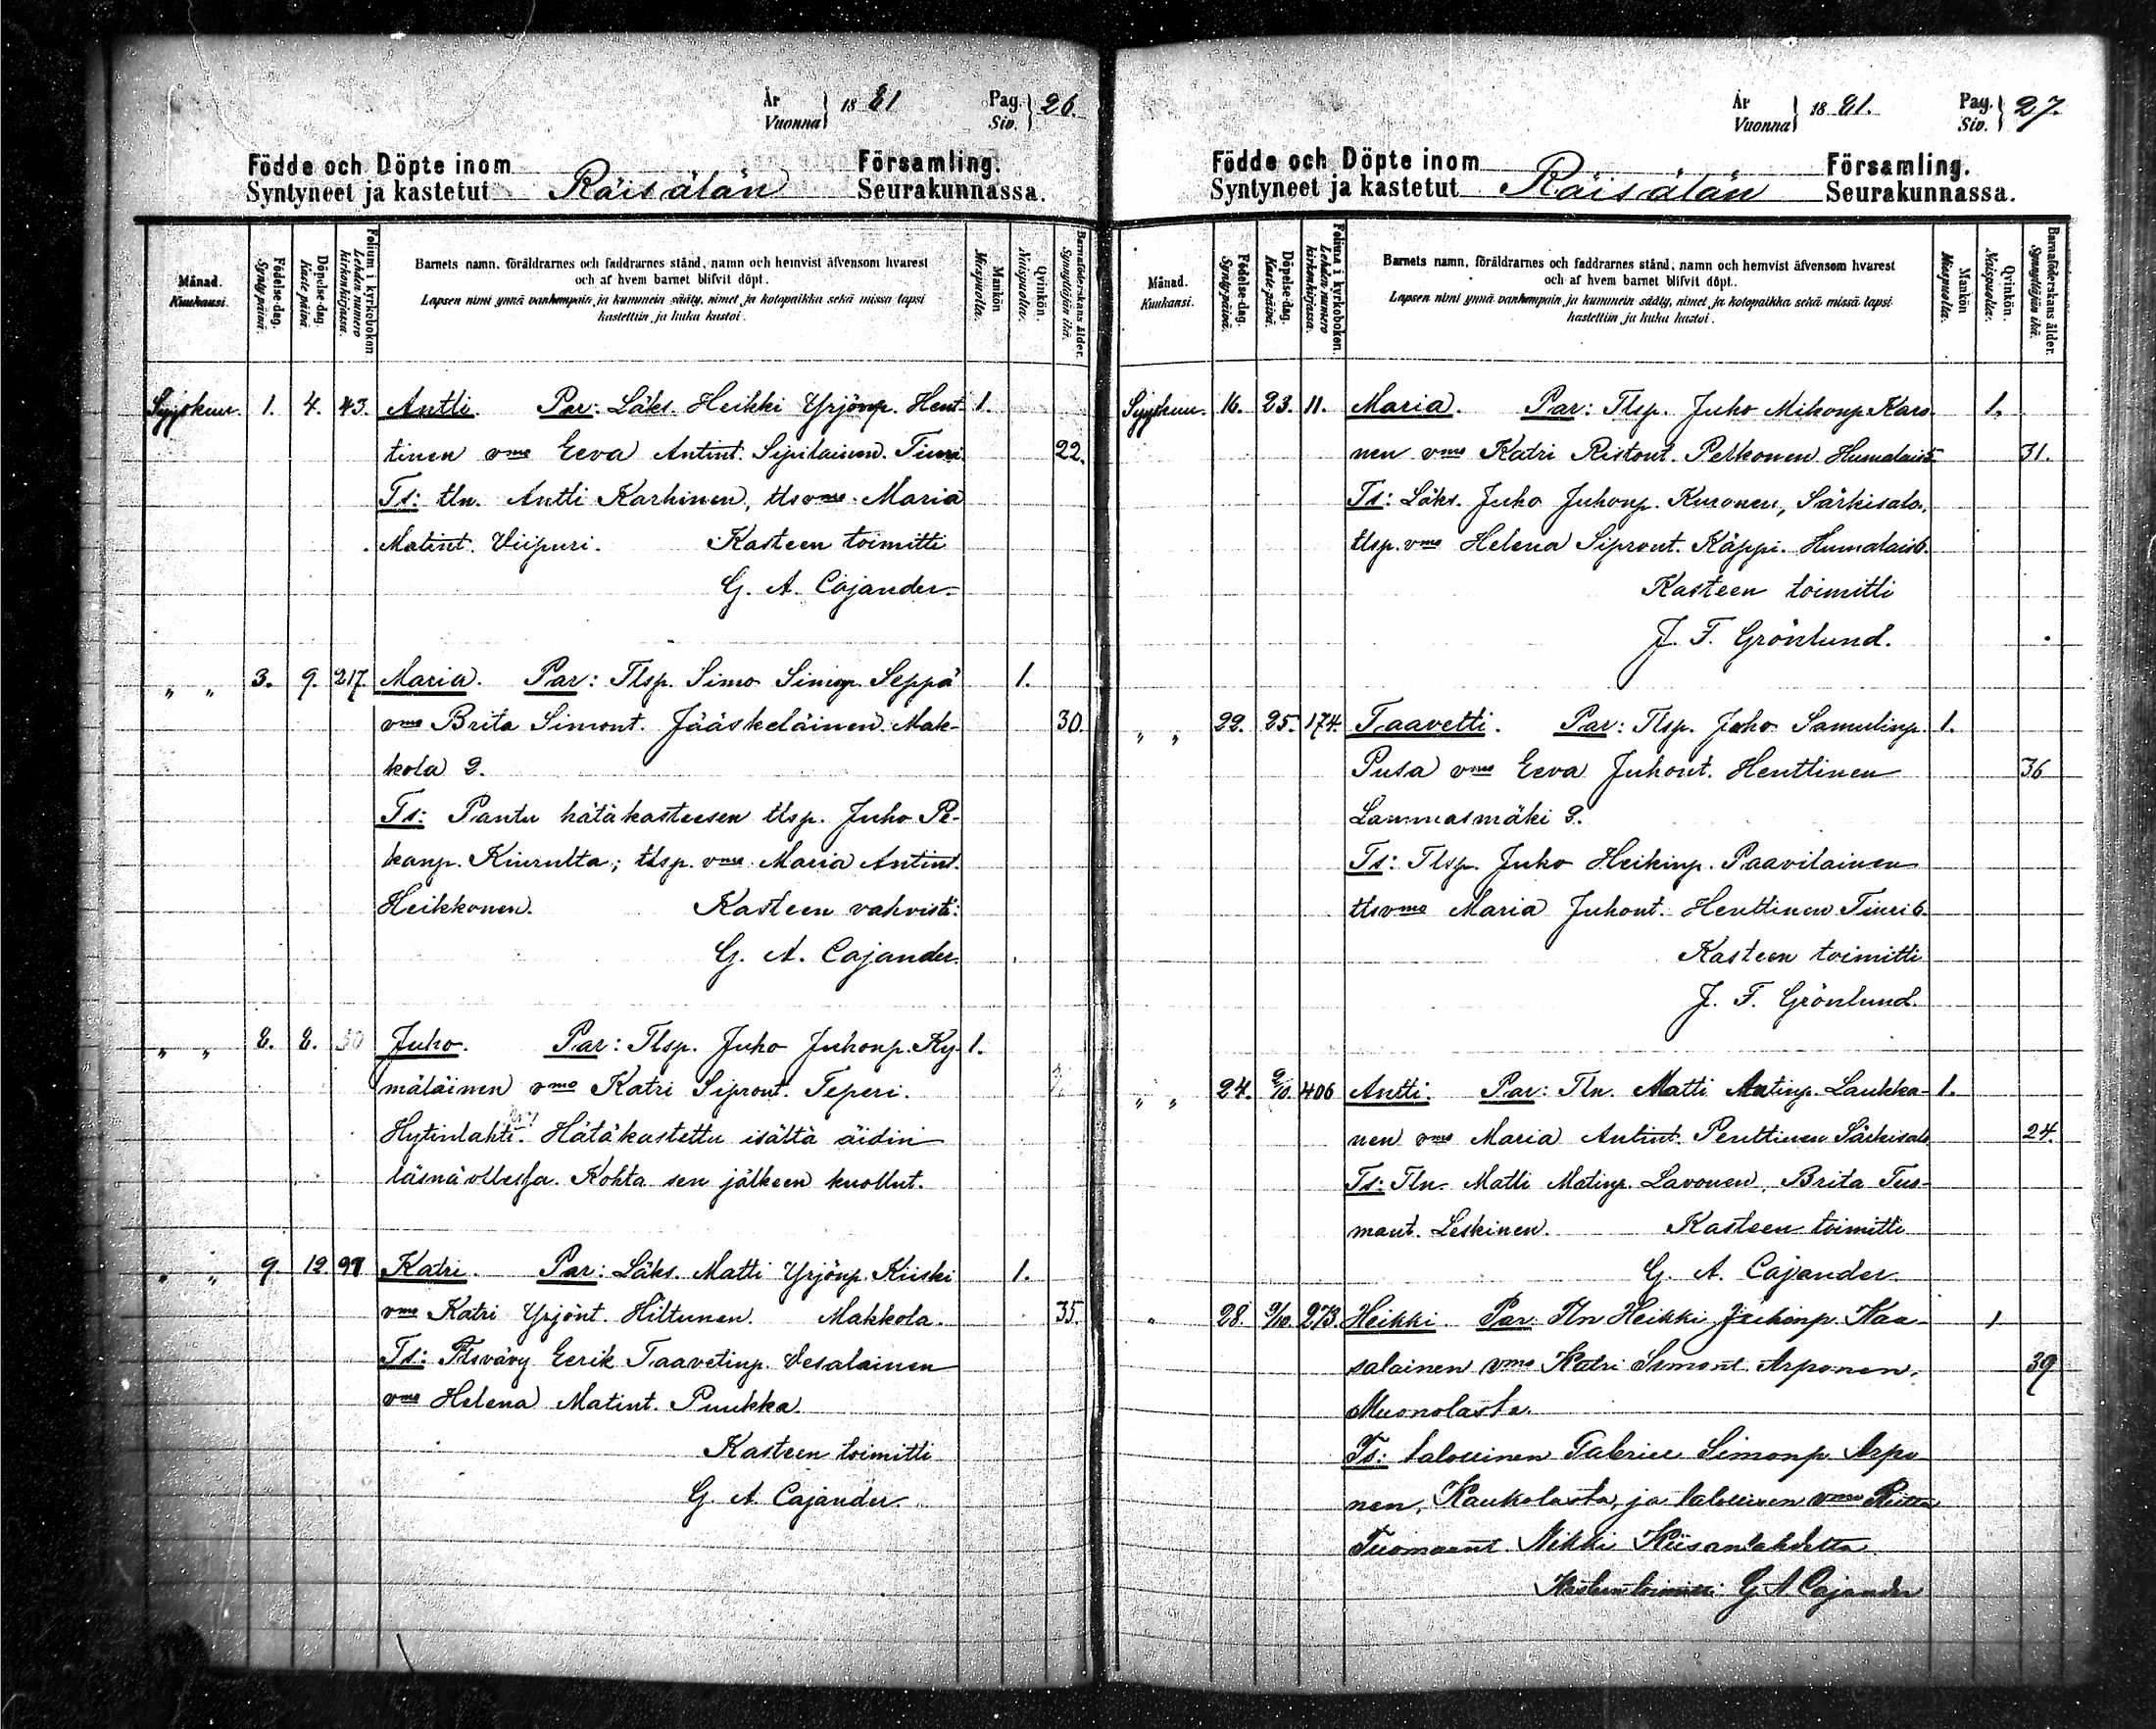 År
Vuonna } 1881
Pag.
Siv. } 26.
Födde och Döpte inom Församling.
Syntyneet ja kastetut Räisälän Seurakunnassa.
Månad.
Kuukausi.
Födelse-dag.
Syntypäivä.
Döpelse-dag.
Kaste-päivä.
Folium i kyrkoboken
Lehden numero kirkonkirjassa.
Barnets namn, föräldrarnes och faddrarnes stånd, namn och hemvist äfvensom hvarest
och af hvem barnet blifvit döpt.
Lapsen nimi ynnä vanhempain ja kummein sääty, nimet ja kotopaikka sekä missä lapsi
kastettiin ja kuka kastoi.
Mankön
Miespuolia.
Qvinkön.
Naispuolia.
Barnaföderskans ålder.
Synnyttäjän ikä.
Syyskuu. 1. 4. 43. Antti. Par: Läks. Heikki Yrjönp. Hent- 1.
tinen vmo Eeva Antint. Sipilainen. Tiuri. 22.
Ts: tln. Antti Karhinen, tlsvmo Maria
Matint. Viipuri. Kasteen toimitti
G. A. Cajander.
" " 3. 9. 217. Maria. Par: Tlsp. Simo Simonp. Seppä 1.
vmo Brita Simont. Jääskeläinen. Mak- 30.
kola 2.
Ts: Pantu hätäkasteesen tlsp. Juho Pe-
kanp. Kiurulta; tlsp. vmo Maria Antint.
Heikkonen. Kasteen vahvisti:
G. A. Cajander.
" " 8. 8. 50 Juho. Par: Tlsp. Juho Juhonp. Ky- 1.
mäläinen vmo Katri Sipront. Teperi.
Hytinlahti. Hätäkastettu isältä äidin
läsnäollessa. Kohta sen jälkeen kuollut.
" " 9. 12. 98 Katri. Par: Läks. Matti Yrjönp. Kiiski 1.
vmo Katri Yrjönt. Hiltunen. Makkola. 35.
Ts: Tlsvävy Eerik Taavetinp. Vesalainen
vmo Helena Matint. Puukka.
Kasteen toimitti
G. A. Cajander.
År
Vuonna } 1881.
Pag.
Siv. } 27.
Födde och Döpte inom Församling.
Syntyneet ja kastetut Räisälän Seurakunnassa.
Månad.
Kuukausi.
Födelse-dag.
Syntypäivä.
Döpelse-dag.
Kaste-päivä.
Folium i kyrkoboken.
Lehden numero kirkonkirjassa.
Barnets namn, föräldrarnes och faddrarnes stånd, namn och hemvist äfvensom hvarest
och af hvem barnet blifvit döpt.
Lapsen nimi ynnä vanhempain ja kummein sääty, nimet ja kotopaikka sekä missä lapsi
kastettiin ja kuka kastoi.
Mankön
Miespuolia.
Qvinkön.
Naispuolia.
Barnaföderskans ålder.
Synnyttäjän ikä.
Syyskuu. 16. 23. 11. Maria. Par: Tlsp. Juho Mikonp. Karo- 1.
nen vmo Katri Ristont. Pelkonen Humalais 31.
Ts: Läks. Juho Juhonp. Kuronen, Särkisalo,
tlsp. vmo Helena Sipront. Käppi. Humalais.
Kasteen toimitti
J. F. Grönlund.
" " 22. 25. 174. Taavetti. Par: Tlsp. Juho Samulinp. 1.
Pusa vmo Eeva Juhont. Henttinen 36
Lammasmäki 2.
Ts: Tlsp. Juho Heikinp. Paavilainen
tlsvmo Maria Juhont. Henttinen Tiuri 6.
Kasteen toimitti
J. F. Grönlund.
" " 24. 2/10. 406 Antti. Par: Tln. Matti Matinp. Laukka- 1.
nen vmo Maria Antint. Penttinen Särkisalo 24.
Ts: Tln. Matti Matinp. Lavonen, Brita Tuo-
mant. Leskinen. Kasteen toimitti
G. A. Cajander.
" 28. 9/10. 273. Heikki. Par. Tln Heikki Juhonp. Kaa- 1
salainen vmo Katri Simont. Arponen. 39
Muonolasta.
Ts: talollinen Gabriel Simonp. Arpo-
nen, Kaukolasta, ja talollisen vmo Riitta
Tuomaant. Nikki Kiisanlahdetta
Kasteen toimitti G. A. Cajander